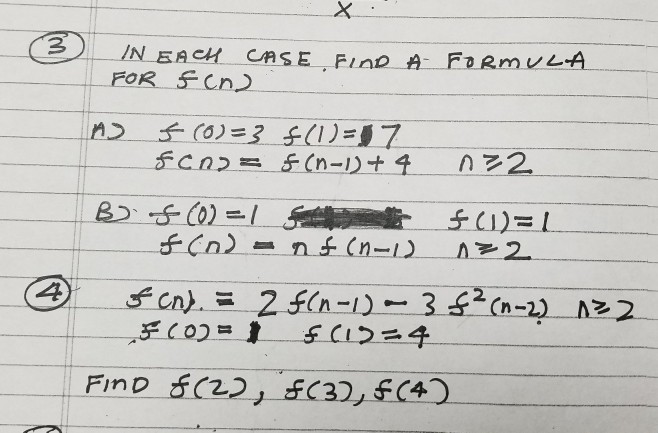 X
3 IN EACH CASE FIND A FORMULA
FOR f(n)
A) f(0)=3 f(1)=7
f(n) = f(n-1)+4 n≥2
B) f(0)=1 f(1)=1
f(n) = n f(n-1) n≥2
4 f(n) = 2 f(n-1) - 3 f²(n-2) n≥2
f(0)=1 f(1)=4
FIND f(2), f(3), f(4)